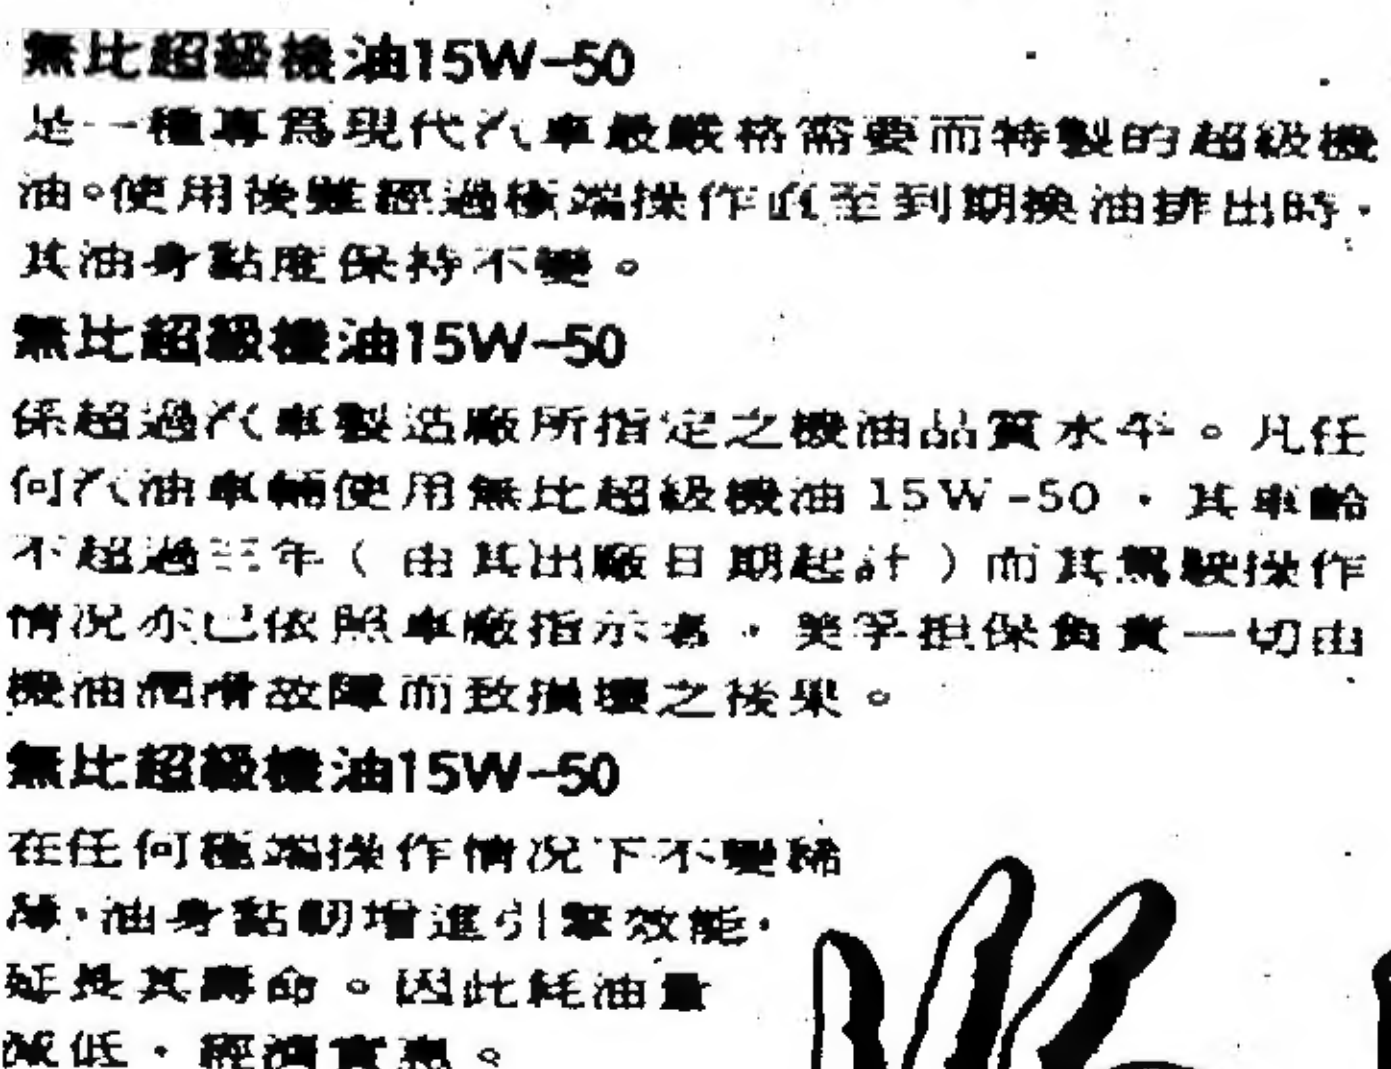 無比超級機油15W-50
是一種專爲現代汽車最嚴格需要而特製的超級機
油。使用後雖經過極端操作直至到期換油排出時，
其油身黏度保持不變。
無比超級機油15W-50
係超過汽車製造廠所指定之機油品質水平。凡任
何汽油車輛使用無比超級機油15W-50，其車齡
不超過三年（由其出廠日期起計）而其駕駛操作
情況亦已依照車廠指示者，美孚担保負責一切由
機油潤滑故障而致損壞之後果。
無比超級機油15W-50
在任何極端操作情況下不變稀
薄，油身黏韌增進引擎效能，
延長其壽命。因此耗油量
減低，經濟實惠。